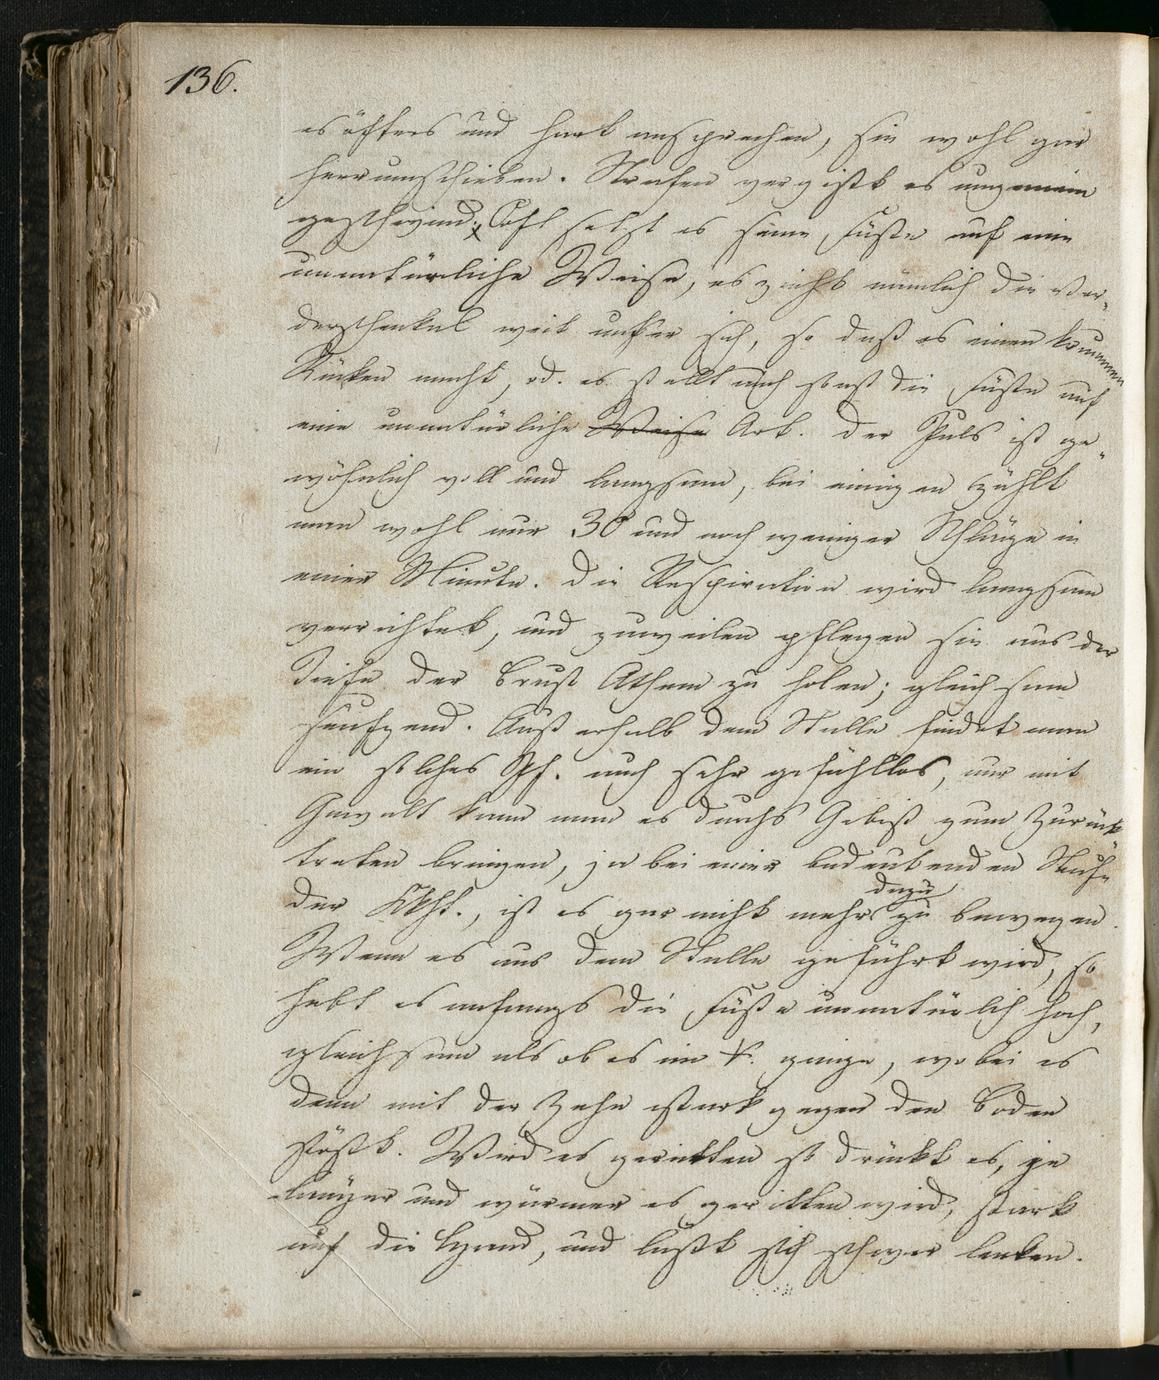 136.
es öfters und hart ansprechen, sie wohl gar
herrumschieben. Strafen vergißt es ungemein
geschwind. Oft setzt es seine Füße auf eine
unnatürliche Weise, es zieht nämlich die Vor-
derschenkel weit unter sich, so daß es einen krummen
Rücken macht, od. es stellt auch sonst die Füße auf
eine unnatürliche Weise Art. Der Puls ist ge-
wöhnlich voll und langsam, bei einigen zählt
man wohl nur 30 und noch weniger Schläge in
einer Minute. Die Respiration wird langsam
verrichtet, und zuweilen pflegen sie aus der
Tiefe der Brust Athem zu holen; gleichsam
seufzend. Außerhalb dem Stalle findet man
ein solches Pf. auch sehr gefühllos, nur mit
Gewalt kann man es durchs Gebiß zum Zurück-
treten bringen, ja bei einer bedeutenden Stufe
der Kkht., ist es gar nicht mehr dazu zu bewegen.
Wenn es aus dem Stalle geführt wird, so
hebt es anfangs die Füße unnatürlich hoch,
gleichsam als ob es im gienge, wobei es
dann mit der Zehe stark gegen den Boden
stößt. Wird es geritten so drückt es, je
länger und wärmer es geritten wird, stark
auf die Hand, und läßt sich schwer lenken.